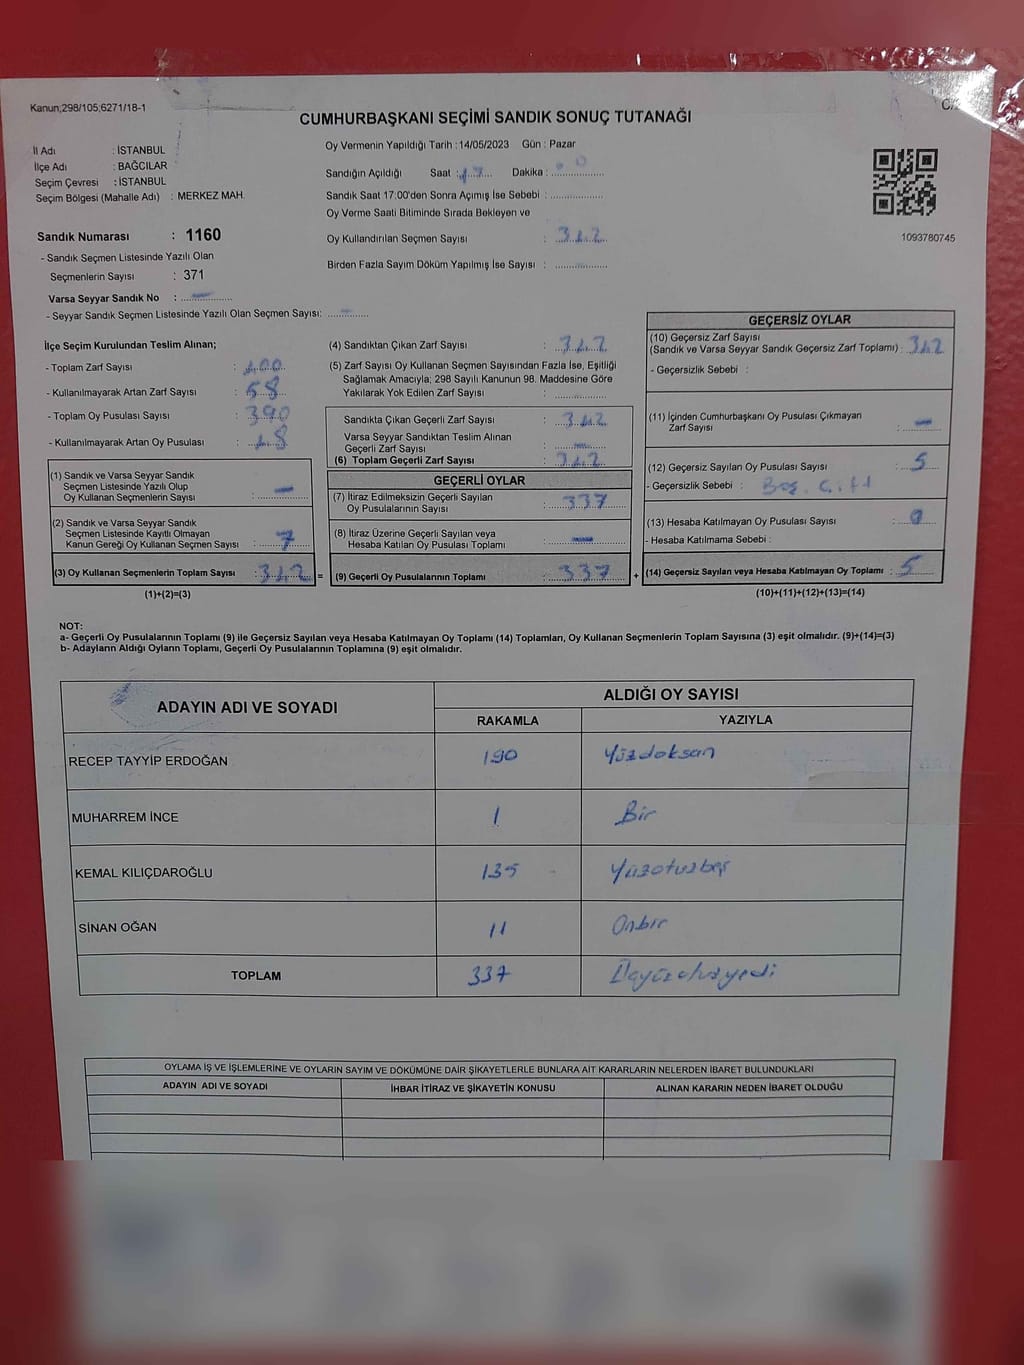 Kanun;298/105;6271/18-1
CUMHURBAŞKANI SEÇİMİ SANDIK SONUÇ TUTANAĞI
İl Adı : İSTANBUL
İlçe Adı : BAĞCILAR
Seçim Çevresi : İSTANBUL
Seçim Bölgesi (Mahalle Adı) : MERKEZ MAH.
Oy Vermenin Yapıldığı Tarih : 14/05/2023 Gün : Pazar
Sandığın Açıldığı Saat : 17 Dakika :
Sandık Saat 17:00'den Sonra Açımış İse Sebebi :
Oy Verme Saati Bitiminde Sırada Bekleyen ve
Oy Kullandırılan Seçmen Sayısı : 342
Birden Fazla Sayım Döküm Yapılmış İse Sayısı :
1093780745
Sandık Numarası : 1160
- Sandık Seçmen Listesinde Yazılı Olan
Seçmenlerin Sayısı : 371
Varsa Seyyar Sandık No : —
- Seyyar Sandık Seçmen Listesinde Yazılı Olan Seçmen Sayısı: —
İlçe Seçim Kurulundan Teslim Alınan;
- Toplam Zarf Sayısı : 400
- Kullanılmayarak Artan Zarf Sayısı : 58
- Toplam Oy Pusulası Sayısı : 390
- Kullanılmayarak Artan Oy Pusulası : 48
(1) Sandık ve Varsa Seyyar Sandık
Seçmen Listesinde Yazılı Olup
Oy Kullanan Seçmenlerin Sayısı : —
(2) Sandık ve Varsa Seyyar Sandık
Seçmen Listesinde Kayıtlı Olmayan
Kanun Gereği Oy Kullanan Seçmen Sayısı : 7
(3) Oy Kullanan Seçmenlerin Toplam Sayısı : 342 =
(1)+(2)=(3)
(4) Sandıktan Çıkan Zarf Sayısı : 342
(5) Zarf Sayısı Oy Kullanan Seçmen Sayısından Fazla İse, Eşitliği
Sağlamak Amacıyla; 298 Sayılı Kanunun 98. Maddesine Göre
Yakılarak Yok Edilen Zarf Sayısı :
Sandıkta Çıkan Geçerli Zarf Sayısı : 342
Varsa Seyyar Sandıktan Teslim Alınan
Geçerli Zarf Sayısı : —
(6) Toplam Geçerli Zarf Sayısı : 342
GEÇERLİ OYLAR
(7) İtiraz Edilmeksizin Geçerli Sayılan
Oy Pusulalarının Sayısı : 337
(8) İtiraz Üzerine Geçerli Sayılan veya
Hesaba Katılan Oy Pusulası Toplamı : —
(9) Geçerli Oy Pusulalarının Toplamı : 337 +
GEÇERSİZ OYLAR
(10) Geçersiz Zarf Sayısı
(Sandık ve Varsa Seyyar Sandık Geçersiz Zarf Toplamı) : 342
- Geçersizlik Sebebi :
(11) İçinden Cumhurbaşkanı Oy Pusulası Çıkmayan
Zarf Sayısı : —
(12) Geçersiz Sayılan Oy Pusulası Sayısı : 5
- Geçersizlik Sebebi : Boş. Çift
(13) Hesaba Katılmayan Oy Pusulası Sayısı : 0
- Hesaba Katılmama Sebebi :
(14) Geçersiz Sayılan veya Hesaba Katılmayan Oy Toplamı : 5
(10)+(11)+(12)+(13)=(14)
NOT:
a- Geçerli Oy Pusulalarının Toplamı (9) ile Geçersiz Sayılan veya Hesaba Katılmayan Oy Toplamı (14) Toplamları, Oy Kullanan Seçmenlerin Toplam Sayısına (3) eşit olmalıdır. (9)+(14)=(3)
b- Adayların Aldığı Oyların Toplamı, Geçerli Oy Pusulalarının Toplamına (9) eşit olmalıdır.
ADAYIN ADI VE SOYADI ALDIĞI OY SAYISI
RAKAMLA YAZIYLA
RECEP TAYYİP ERDOĞAN 190 Yüzdoksan
MUHARREM İNCE 1 Bir
KEMAL KILIÇDAROĞLU 135 Yüzotuzbeş
SİNAN OĞAN 11 Onbir
TOPLAM 337
OYLAMA İŞ VE İŞLEMLERİNE VE OYLARIN SAYIM VE DÖKÜMÜNE DAİR ŞİKAYETLERLE BUNLARA AİT KARARLARIN NELERDEN İBARET BULUNDUKLARI
ADAYIN ADI VE SOYADI İHBAR İTİRAZ VE ŞİKAYETİN KONUSU ALINAN KARARIN NEDEN İBARET OLDUĞU